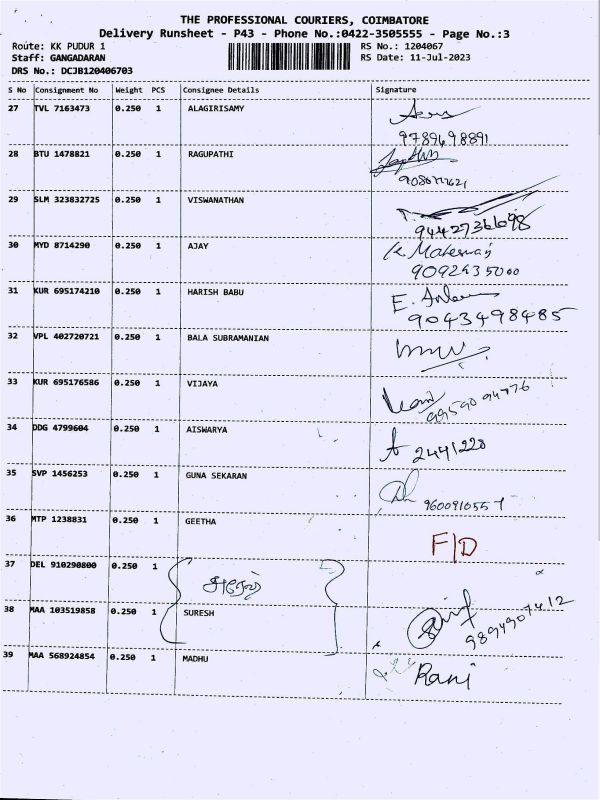 THE PROFESSIONAL COURIERS, COIMBATORE
Delivery Runsheet - P43 - Phone No.:0422-3505555 - Page No.:3
Route: KK PUDUR 1 RS No.: 1204067
Staff: GANGADARAN RS Date: 11-Jul-2023
DRS No.: DCJB120406703
S No Consignment No Weight PCS Consignee Details Signature
27 TVL 7163473 0.250 1 ALAGIRISAMY
9789698891
28 BTU 1478821 0.250 1 RAGUPATHI
29 SLM 323832725 0.250 1 VISWANATHAN
9442736698
30 MYD 8714290 0.250 1 AJAY
9092435000
31 KUR 695174210 0.250 1 HARISH BABU E.
9043498485
32 VPL 402720721 0.250 1 BALA SUBRAMANIAN
33 KUR 695176586 0.250 1 VIJAYA
9959094776
34 DDG 4799604 0.250 1 AISWARYA A 2441228
35 SVP 1456253 1 GUNA SEKARAN
9600910557
36 MTP 1238831 0.250 1 GEETHA F/D
37 DEL 910290800 0.250 1 சுரேஷ்
38 MAA 103519858 0.250 1 SURESH
9894907412
39 MAA 568924854 0.250 1 MADHU Rani